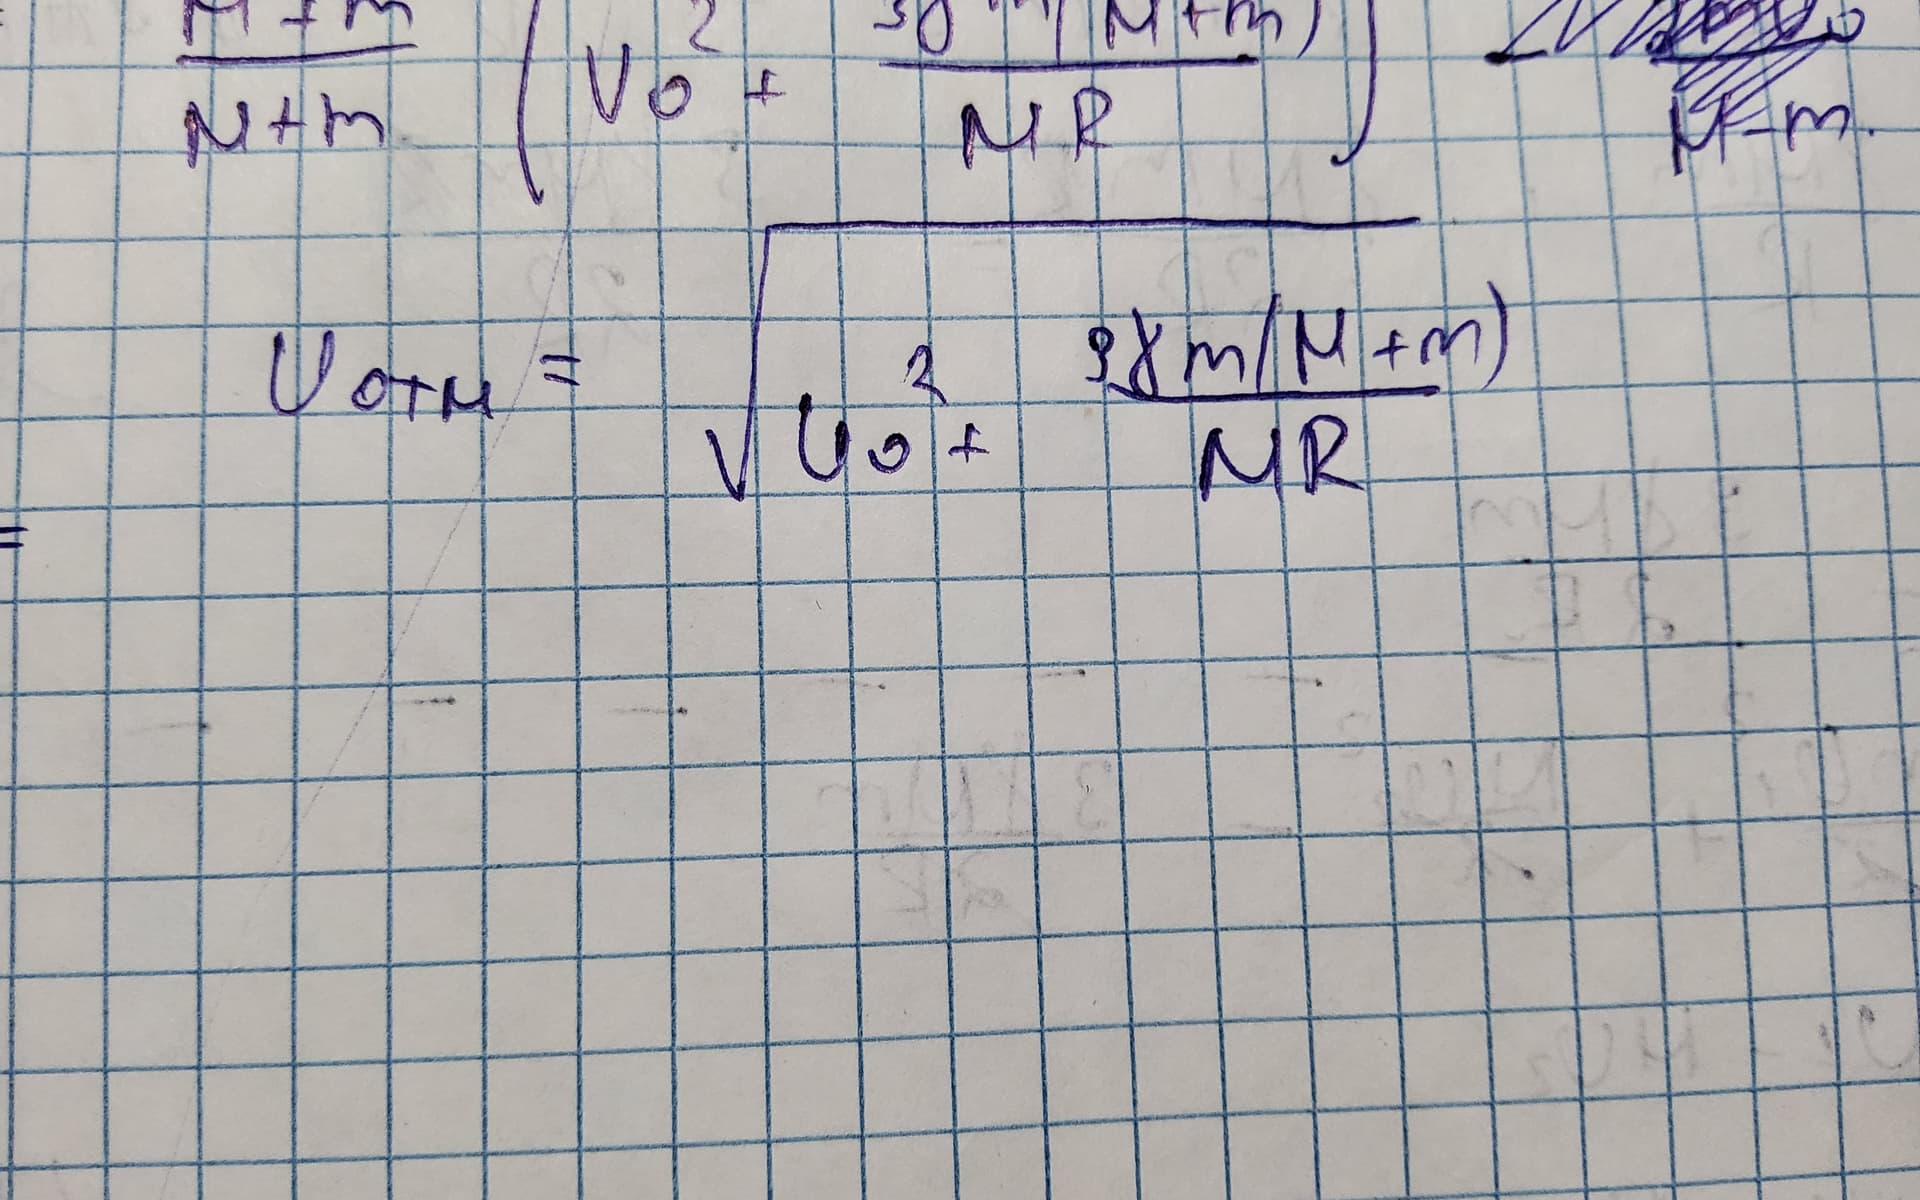 M+m / M+m (V₀² + 3γm(M+m) / MR)
M-m.
U отн = √(U₀² + 3γm(M+m) / MR)
=